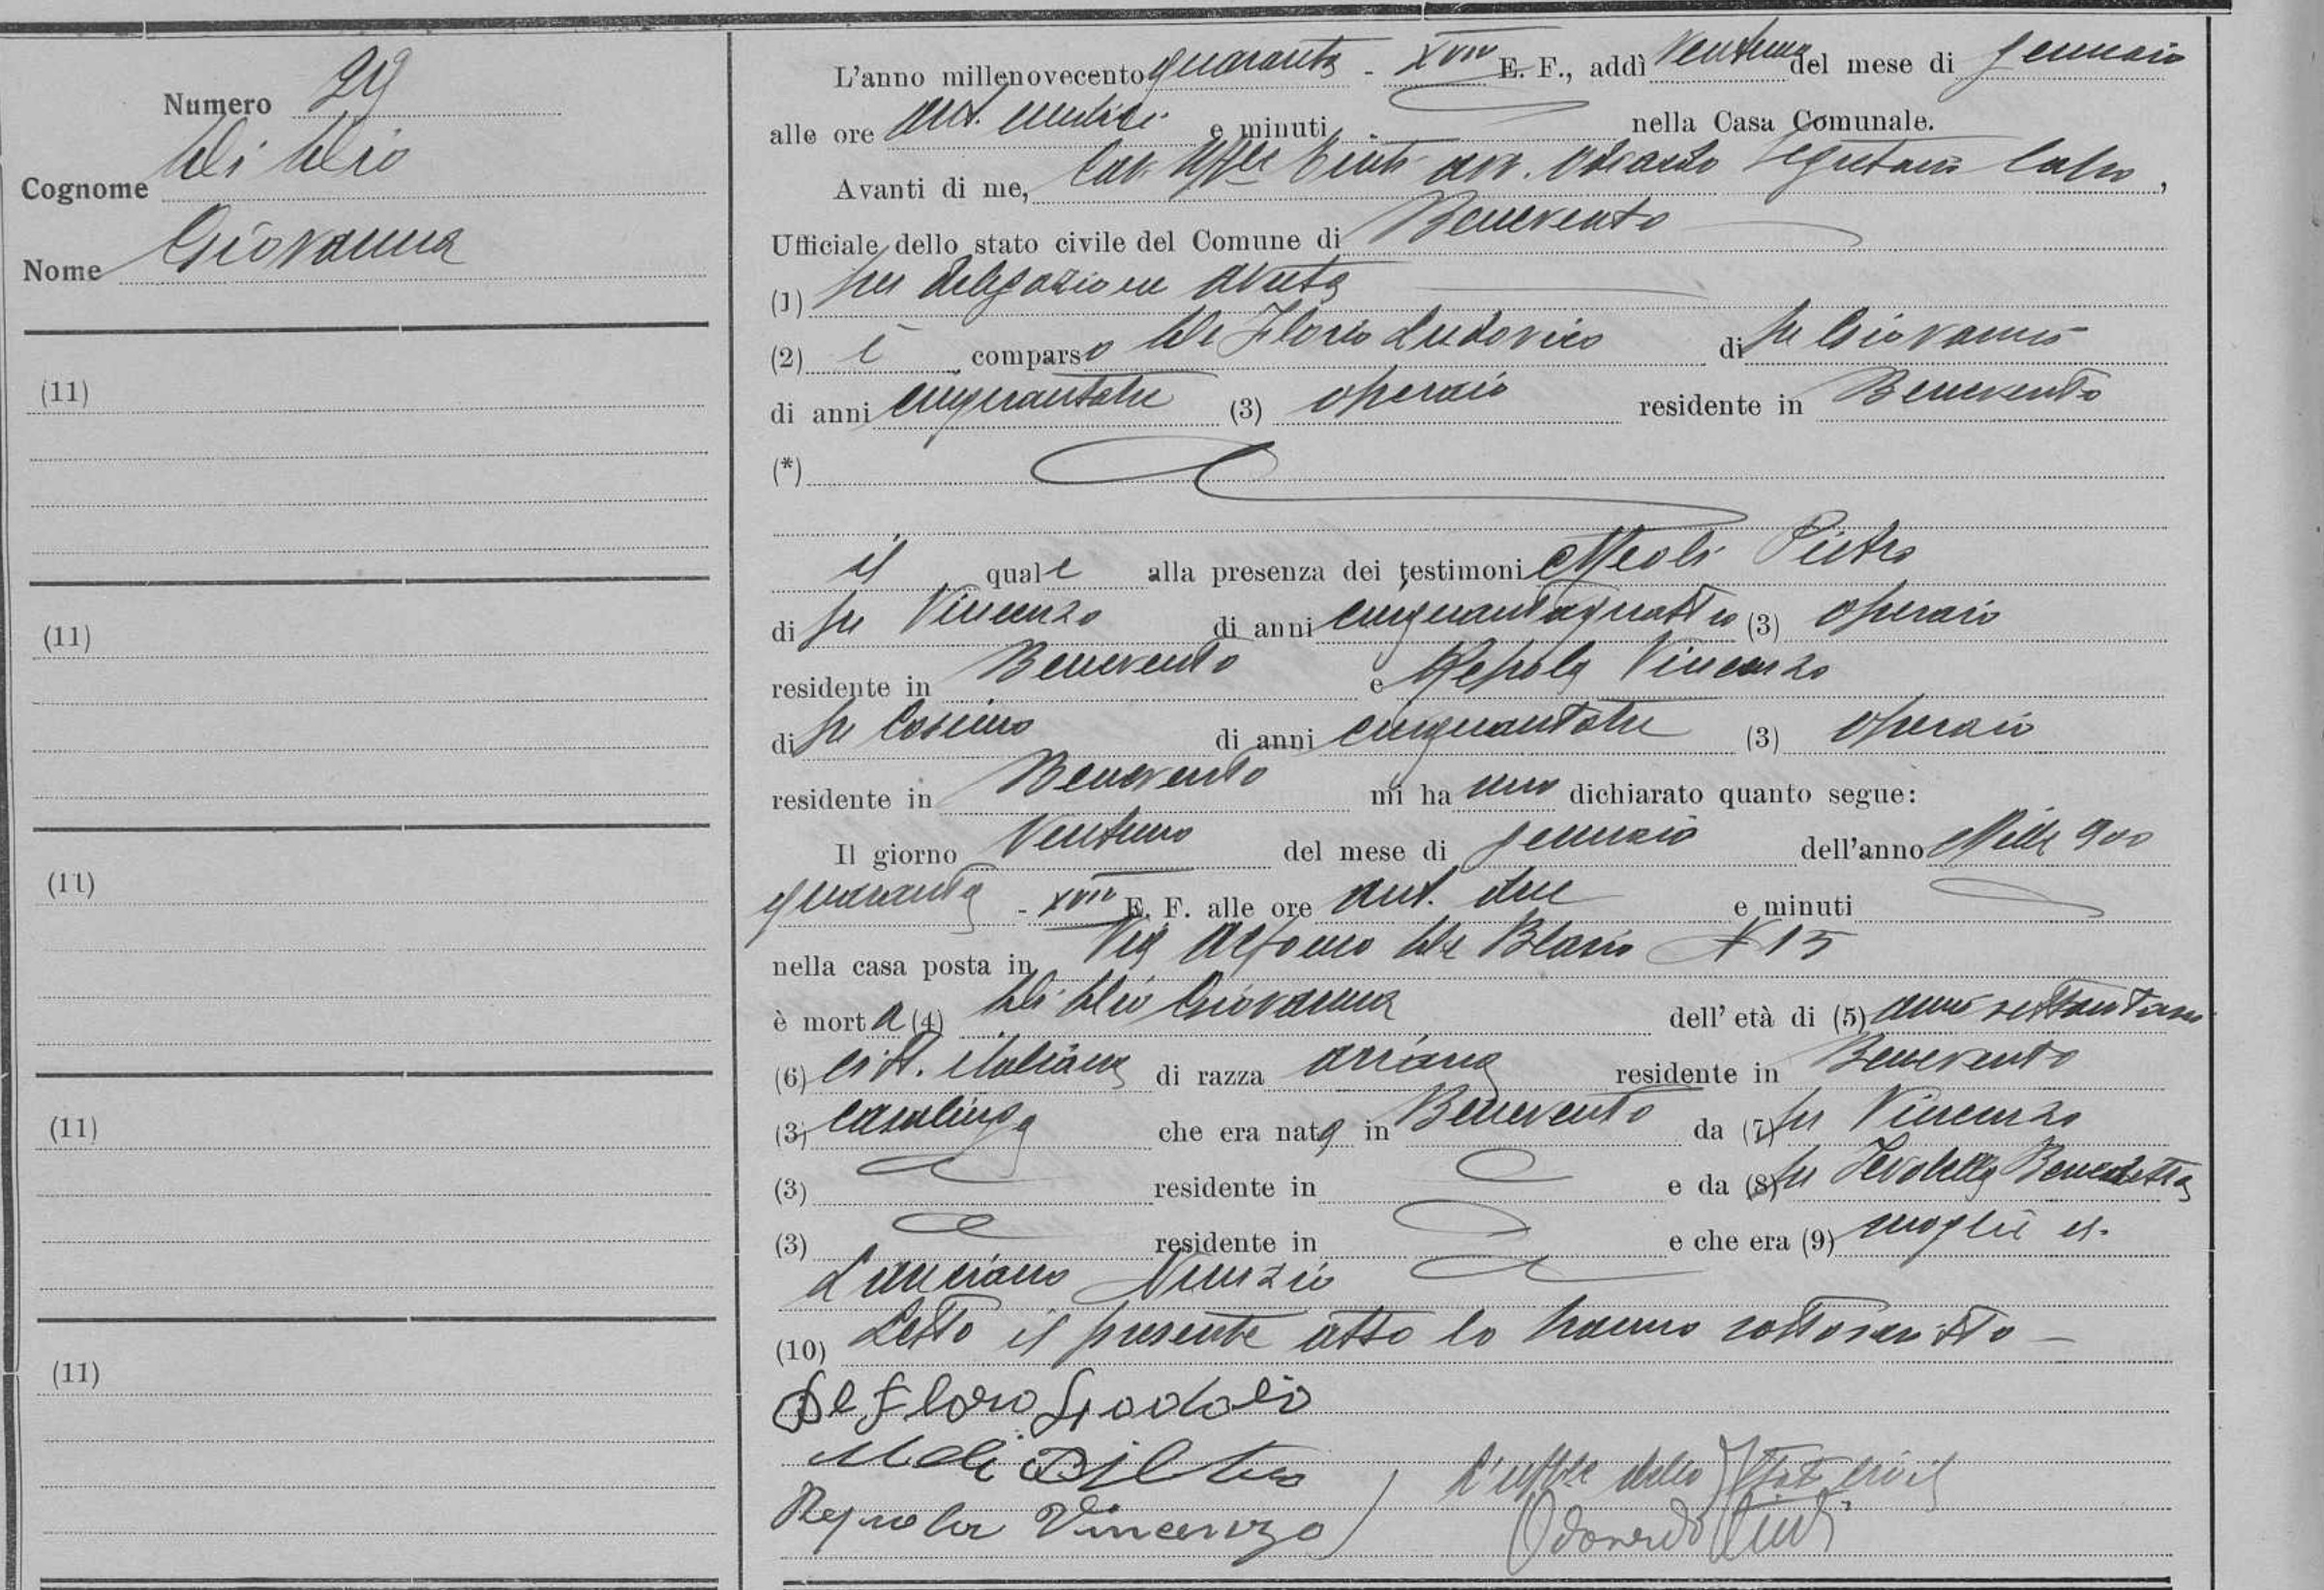 Numero 29
Cognome Di Dio
Nome Giovanna
(11)
(11)
(11)
(11)
(11)
L'anno millenovecento quaranta - XVIII E. F., addì ventuno del mese di gennaio
alle ore ant. undici e minuti nella Casa Comunale.
Avanti di me, Cav. Uff.le avv. Odoardo Segretario Capo,
Ufficiale dello stato civile del Comune di Benevento
(1) per delegazione avuta
(2) è comparso De Florio Ludovico di fu Giovanni
di anni cinquantatre (3) operaio residente in Benevento
(*)
il quale alla presenza dei testimoni Meoli Pietro
di fu Vincenzo di anni cinquantaquattro (3) operaio
residente in Benevento e Repola Vincenzo
di fu Cosimo di anni cinquantatre (3) operaio
residente in Benevento mi ha uno dichiarato quanto segue:
Il giorno ventuno del mese di gennaio dell'anno Mille 900
quaranta - XVIII E. F. alle ore ant. due e minuti
nella casa posta in Via Alfonso De Blasio N 15
è morta (4) Di Dio Giovanna dell'età di (5) anni
(6) citt. italiana di razza ariana residente in Benevento
(3) casalinga che era nata in Benevento da (7) fu Vincenzo
(3) residente in e da (8) fu Benedetta
(3) residente in e che era (9) moglie di
Lanciano Nunzio
(10) Letto il presente atto lo hanno sottoscritto -
De Florio
Meoli
Repola Vincenzo
L'uff.le dello Stato civile
Odoardo